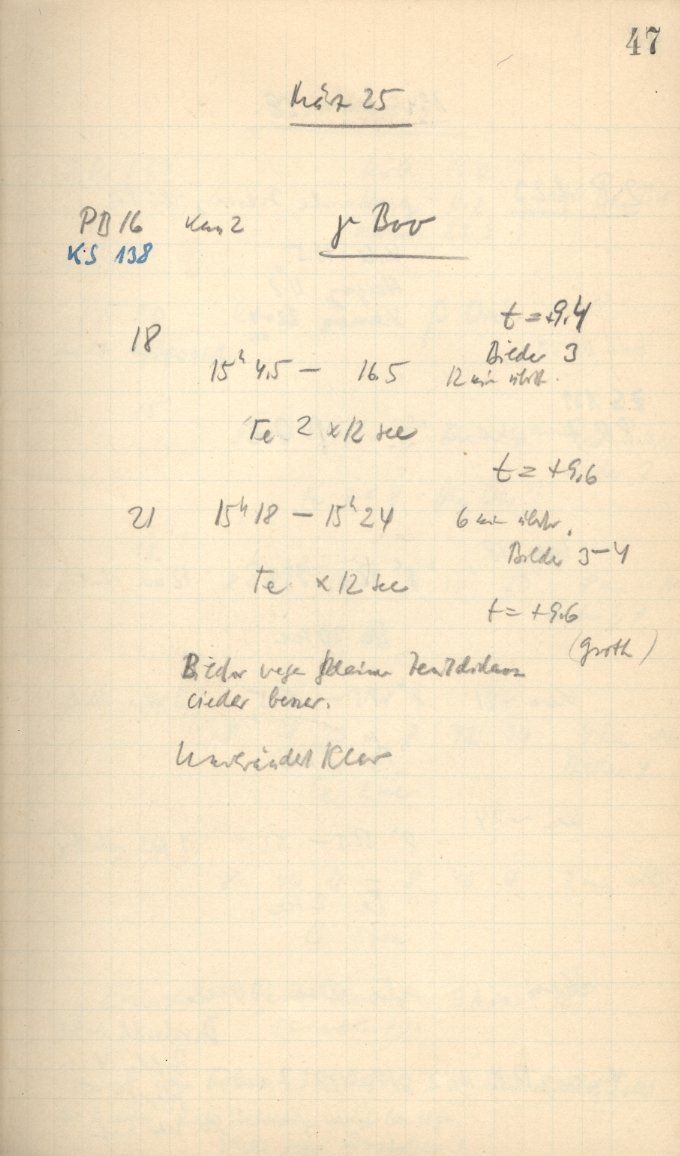 47
März 25
PB 16 Kam 2 γ Boo
KS 138
t = +9.4
18
Bilder 3
15h 4.5 – 16.5 12 min
Te 2 x 12 sec
t = +9.6
21 15h 18 – 15h 24 6 min
Bilder 3–4
Te x 12 sec
t = +9.6
(Groth)
Bilder wegen kleiner Zenitdistanz
wieder besser.
Unverändert klar